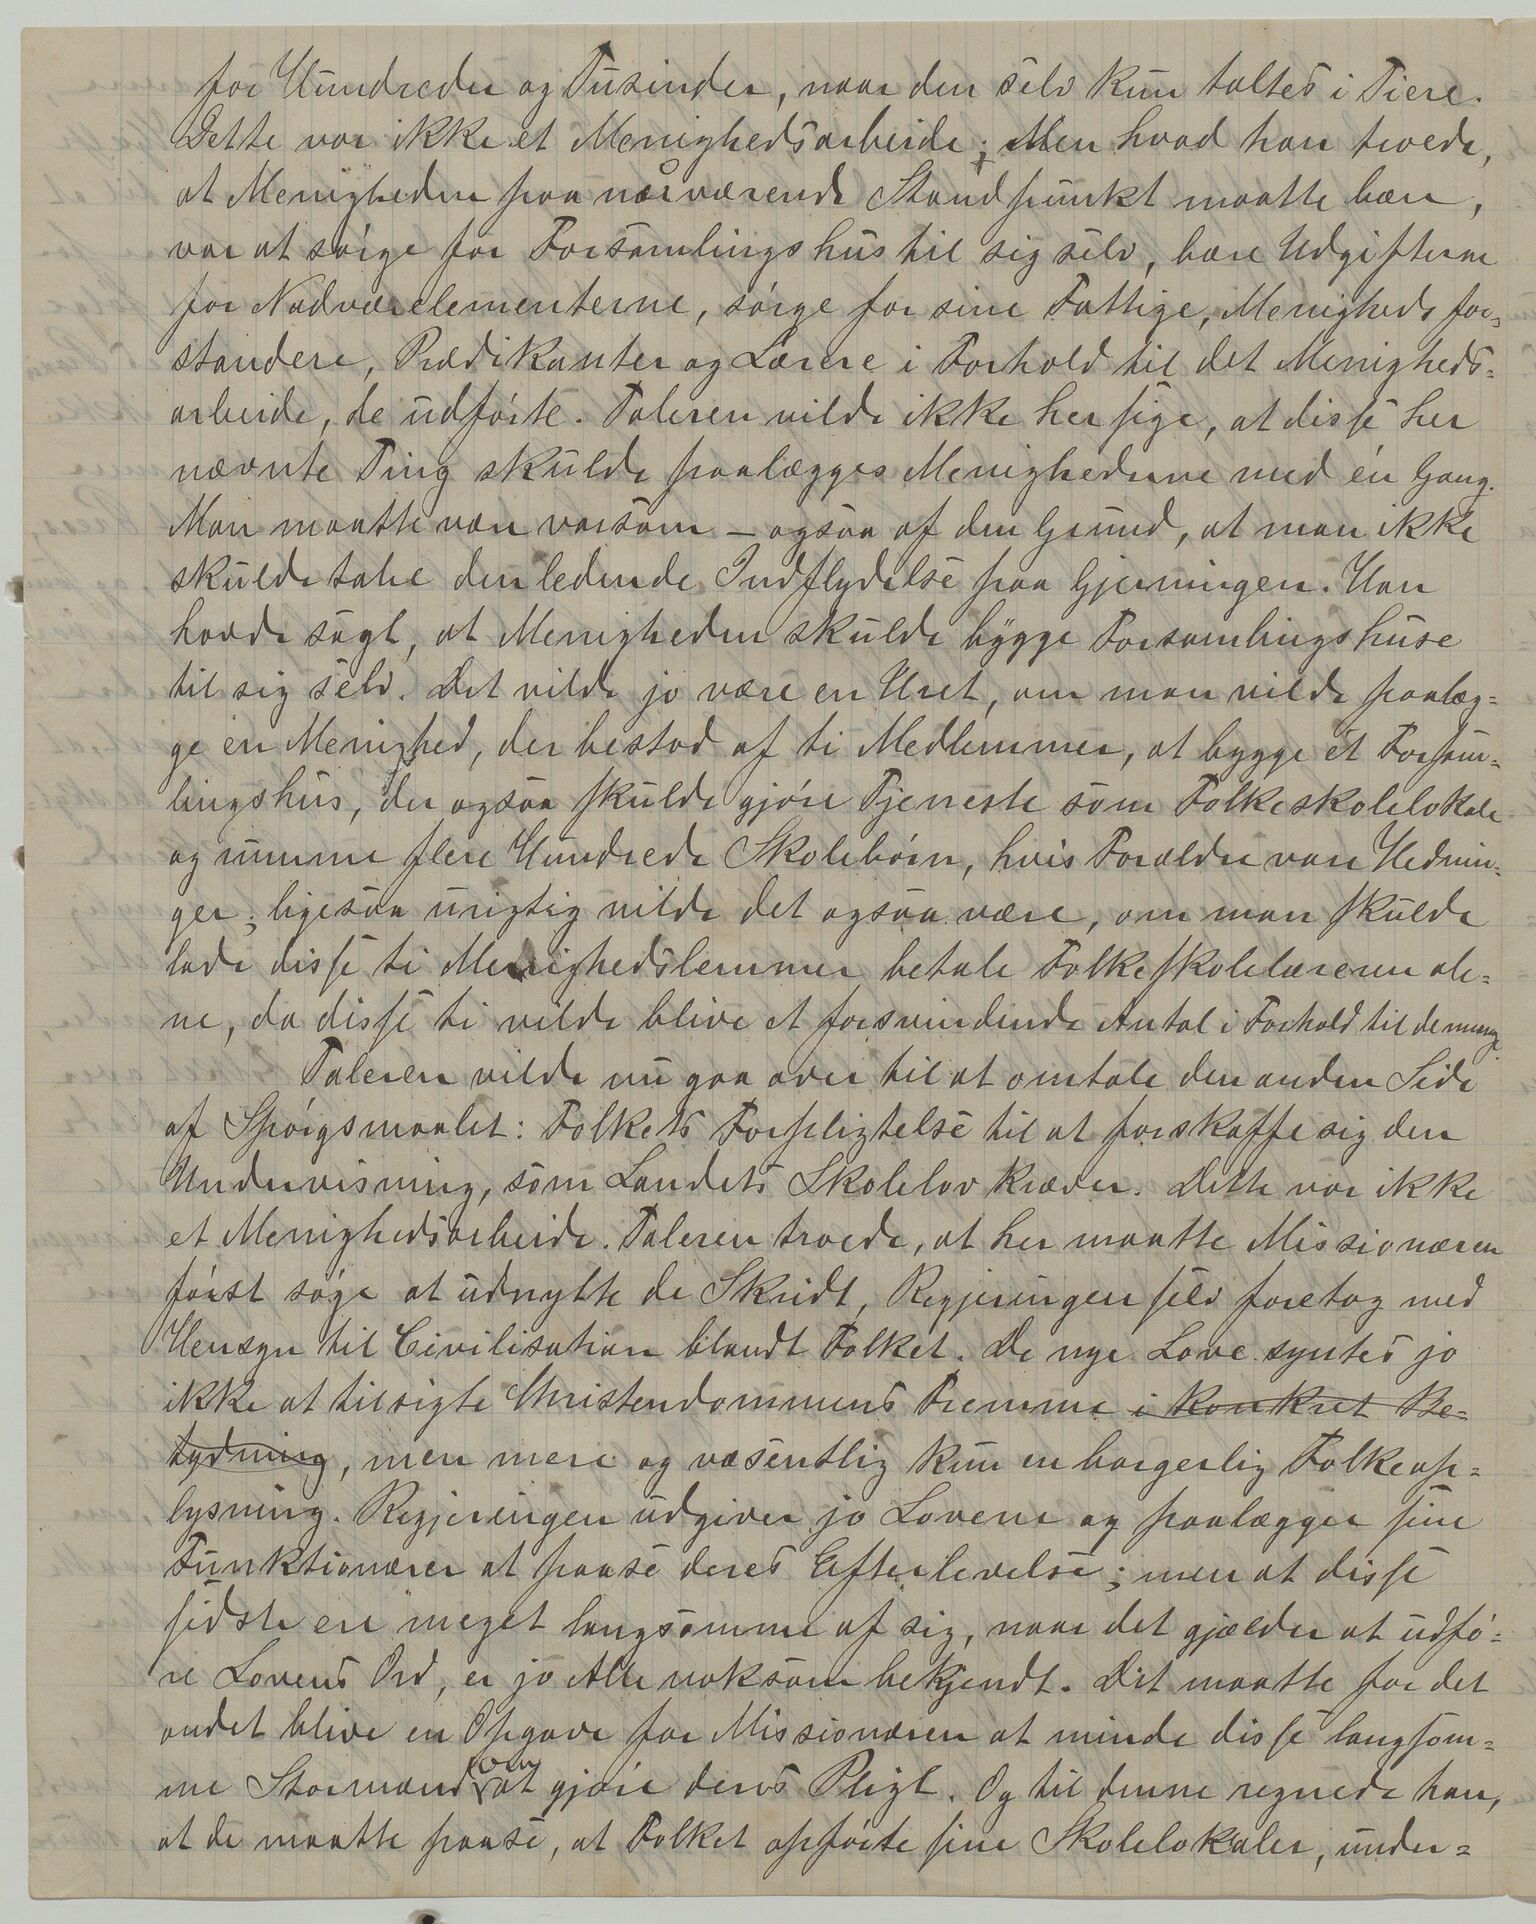 for Hundreder og Tusinder, naar den selv kun taltes i Tiere.
Dette var ikke et Menighedsarbeide; Men hvad han troede,
at Menigheden paa nærværende Standpunkt maatte bære,
var at sørge for Forsamlingshus til sig selv, bære Udgifterne
for Nadverelementerne, sørge for sine Fattige, Menighedsfor-
standere, Prædikanter og Lærere i Forhold til det Menigheds-
arbeide, de udførte. Taleren vilde ikke her sige, at disse her
nævnte Ting skulde paalægges Menighederne med én Gang.
Man maatte være varsom – ogsaa af den Grund, at man ikke
skulde tabe den ledende Indflydelse paa Gjerningen. Han
havde sagt, at Menigheden skulde bygge Forsamlingshuse
til sig selv. Det vilde jo være en Uret, om man vilde paalæg-
ge en Menighed, der bestod af ti Medlemmer, at bygge et Forsam-
lingshus, der ogsaa skulde gjøre Tjeneste som Folkeskolelokale
og rumme flere Hundrede Skolebørn, hvis Forældre vare Hednin-
ger; ligesaa urigtig vilde det ogsaa være, om man skulde
lade disse ti Menighedslemmer betale Folkeskolelæreren ale-
ne, da disse ti vilde blive et forsvindende Antal i Forhold til de mange
Taleren vilde nu gaa over til at omtale den anden Side
af Spørgsmaalet: Folkets Forpligtelse til at forskaffe sig den
Undervisning, som Landets Skolelov kræver. Dette var ikke
et Menighedsarbeide. Taleren troede, at her maatte Missionæren
først søge at udnytte de Skridt, Regjeringen selv foretog med
Hensyn til Civilisation blandt Folket. De nye Love syntes jo
ikke at tilsigte Christendommens Fremme i konkret Be-
tydning, men mere og væsentlig kun en borgerlig Folkeop-
lysning. Regjeringen udgiver jo Lovene og paalægger sine
Funktionærer at paase deres Efterlevelse; men at disse
sidste ere meget langsomme af sig, naar det gjælder at udfø-
re Lovens Ord, er jo Alle noksom bekjendt. Det maatte for det
andet blive en Opgave for Missionæren at minde disse langsom-
me Stormænd om at gjøre deres Pligt. Og til denne regnede han,
at de maatte paase, at Folket opførte sine Skolelokaler, under-